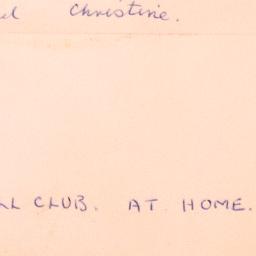 Christine.
CLUB. AT HOME.